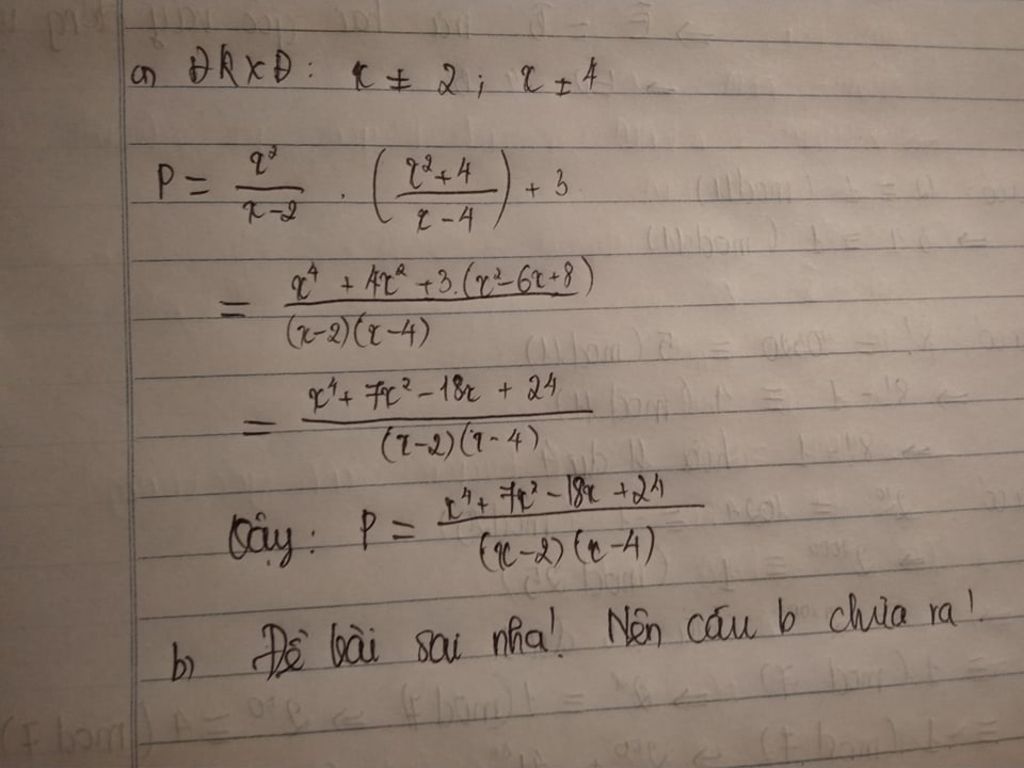 a) ĐKXĐ: x ≠ 2; x ≠ 4
P = x²/(x-2) . ((x²+4)/(x-4)) + 3
= (x⁴ + 4x² + 3.(x²-6x+8))/((x-2)(x-4))
= (x⁴ + 7x² - 18x + 24)/((x-2)(x-4))
Vậy: P = (x⁴ + 7x² - 18x + 24)/((x-2)(x-4))
b) Đề bài sai nha! Nên câu b chưa ra!